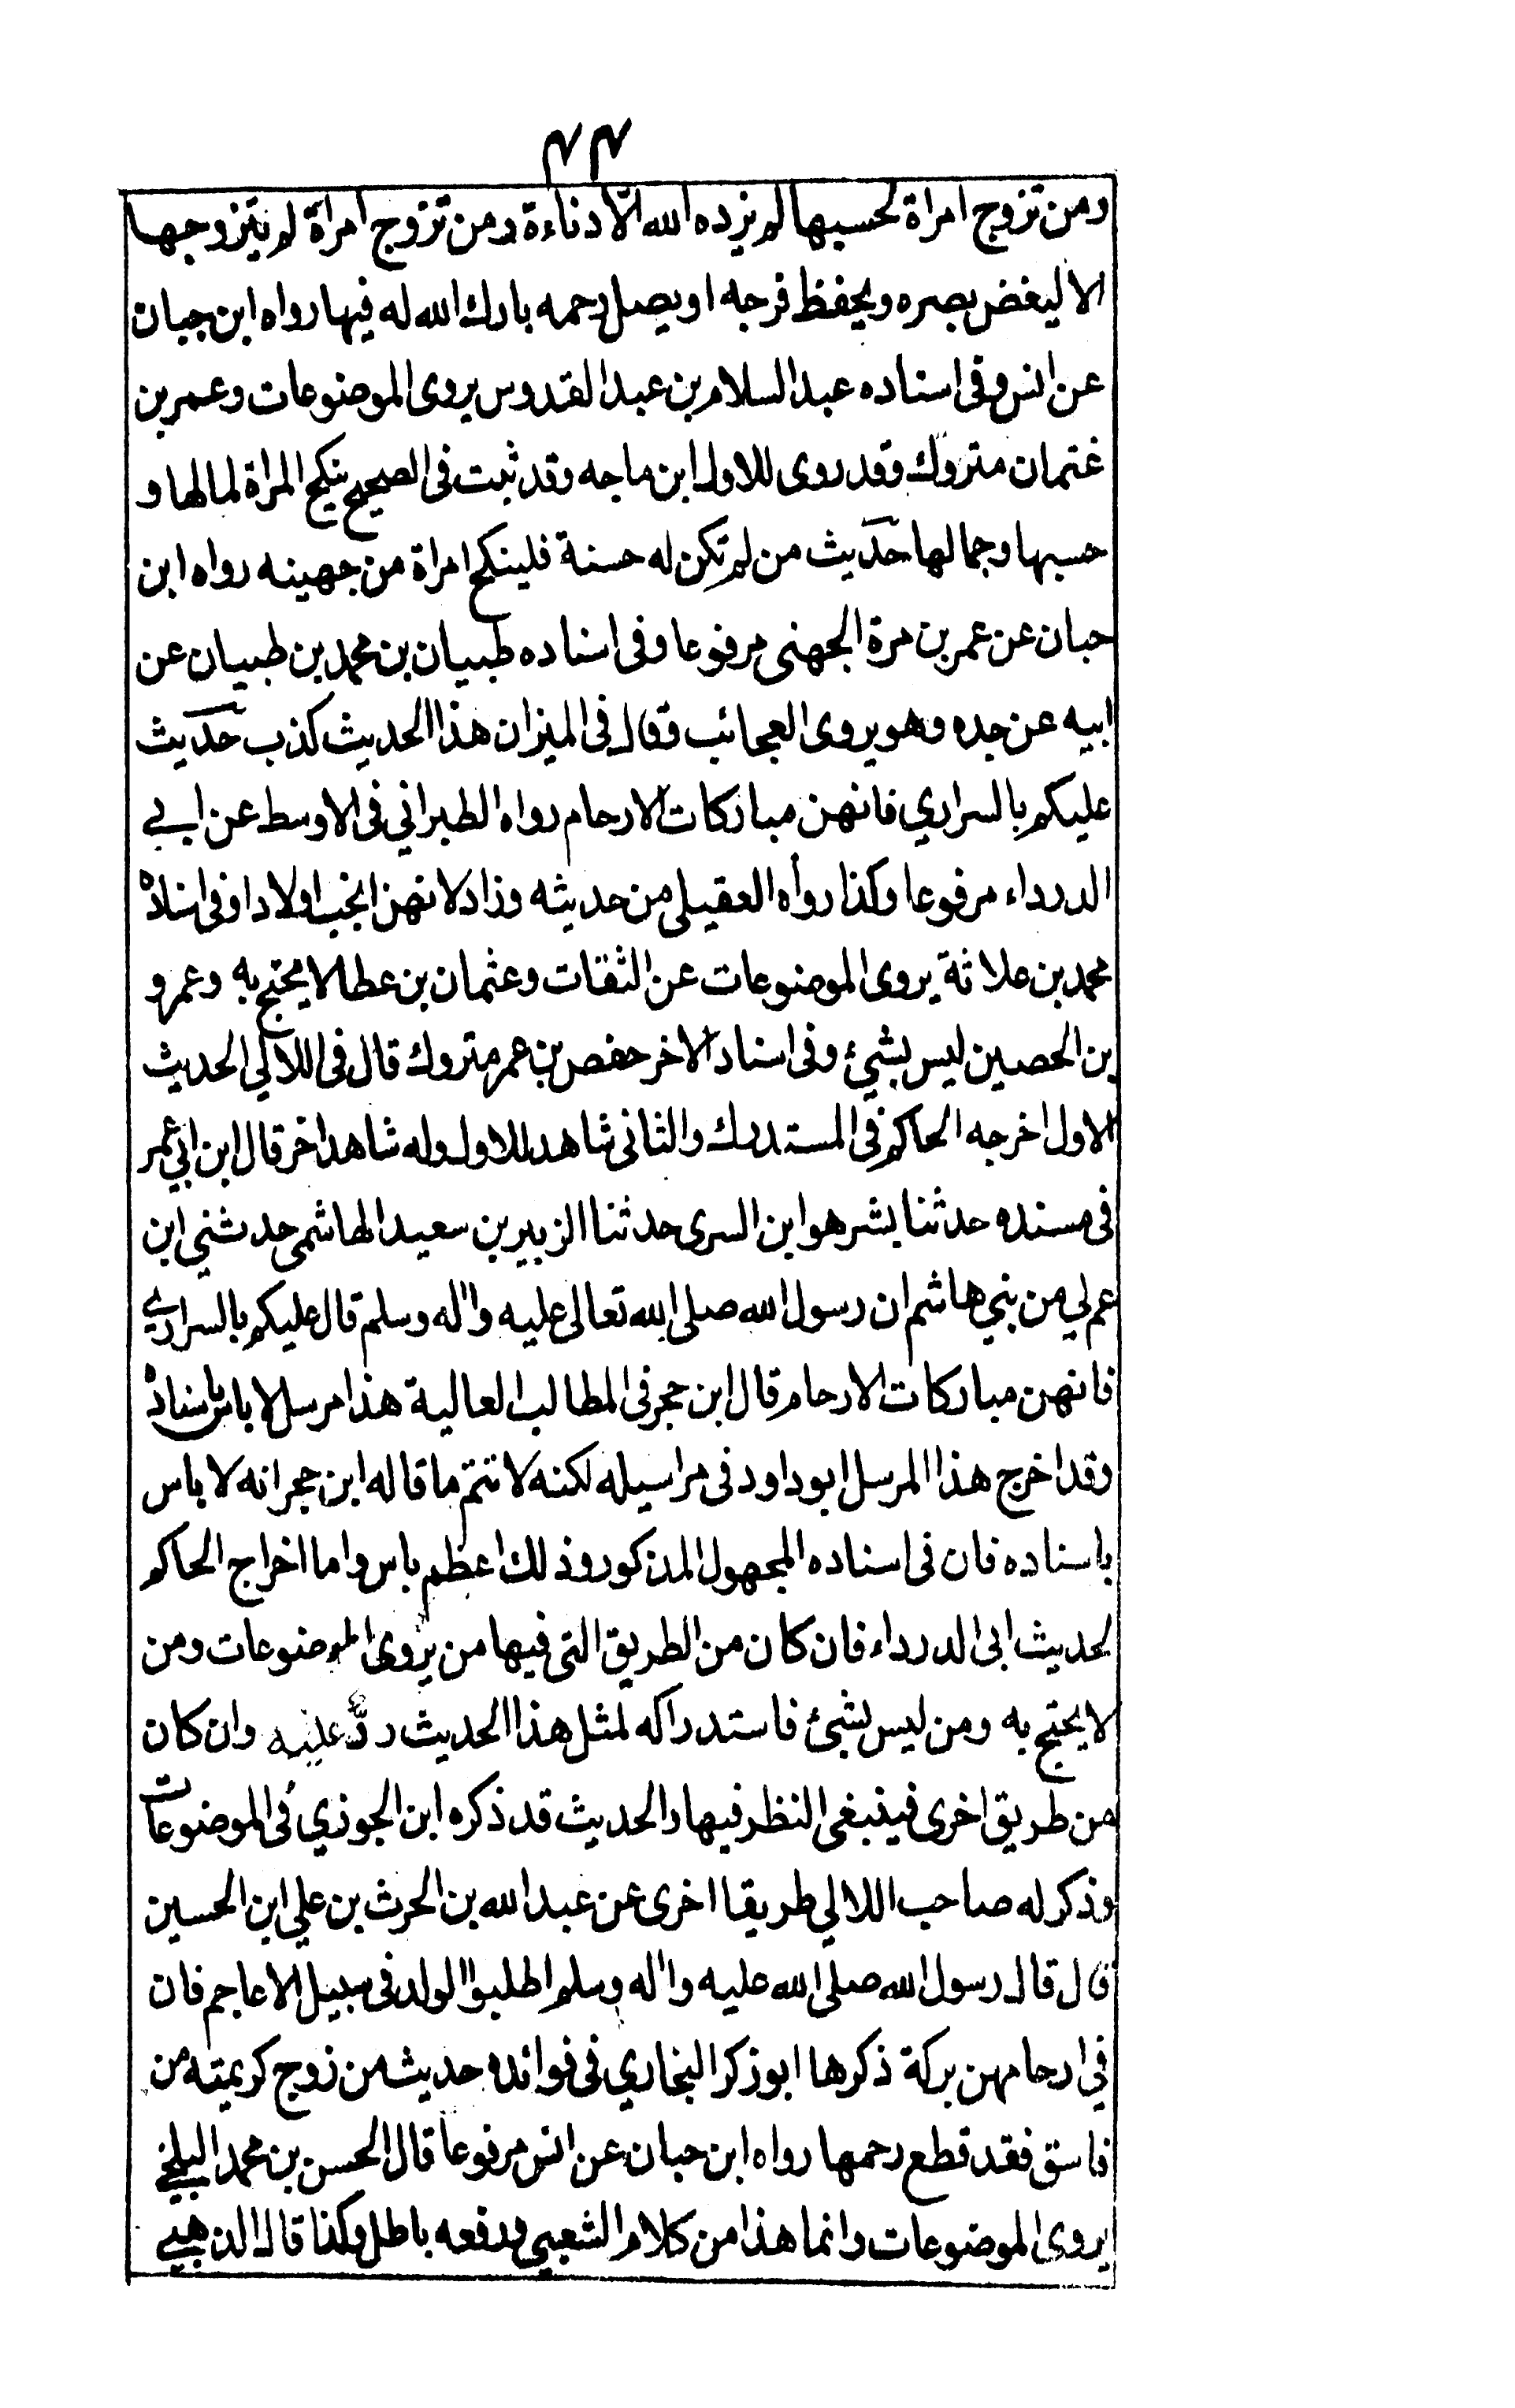 ٤٤
ومن تزوج امراة لحسبها لم يزده الله الّا دناءة ومن تزوج امرأة لم يتزوجها
الا ليغض بصره ويحفظ فرجه او يصل رحمه بارك الله له فيها رواه ابن حبان
عن انس وفى اسناده عبد السلام بن عبد القدوس يروى الموضوعات وعمر بن
عثمان متروك وقد روى للاول ابن ماجه وقد ثبت فى الصحيح ينكح المراة لمالها و
حسبها وجمالها حديث من لم تكن له حسنة فلينكح امراة من جهينه رواه ابن
حبان عن عمر بن مرة الجهنى مرفوعا وفى اسناده طبيان بن محمد بن طبيان عن
ابيه عن جده وهو يروى العجائب وقال فى الميزان هذا الحديث كذب حديث
عليكم بالسراري فانهن مباركات الارحام رواه الطبراني فى الاوسط عن ابي
الدرداء مرفوعا وكذا رواه العقيلى من حديثه وزاد لانهن انجب اولادا وفى اسناده
محمد بن علاثة يروى الموضوعات عن الثقات وعثمان بن عطا لا يحتج به وعمرو
بن الحصين ليس بشيئ وفى اسناد الاخر حفص بن عمر متروك قال فى اللالي الحديث
الاول اخرجه الحاكم فى المستدرك والثانى شاهد للاول وله شاهد اخر قال ابن ابي عمر
فى مسنده حدثنا بشر هو ابن السرى حدثنا الزبير بن سعيد الهاشمى حدثني ابن
عم لي من بني هاشم ان رسول الله صلى الله تعالى عليه واله وسلم قال عليكم بالسراري
فانهن مباركات الارحام قال ابن حجر فى المطالب العالية هذا مرسل لا باس باسناده
وقد اخرج هذا المرسل ابو داود فى مراسيله لكنه لا تتم ما قاله ابن حجر انه لا باس
باسناده فان فى اسناده المجهول المذكور وذلك اعظم باس واما اخراج الحاكم
لحديث ابى الدرداء فان كان من الطريق التى فيها من يروى الموضوعات ومن
لا يحتج به ومن ليس بشيئ فاستدراكه لمثل هذا الحديث ردّ عليه وان كان
من طريق اخرى فينبغى النظر فيها والحديث قد ذكره ابن الجوزي فى الموضوعات
وذكر له صاحب اللالي طريقا اخرى عن عبد الله بن الحرث بن علي ابن الحسين
قال قال رسول الله صلى الله عليه واله وسلم اطلبوا الولد فى سبيل الاعاجم فان
في ارحامهن بركة ذكرها ابو زكر البخاري فى فوائده حديث من زوج كريمته من
فاسق فقد قطع رحمها رواه ابن حبان عن انس مرفوعا قال الحسن بن محمد البلخي
يروى الموضوعات وانما هذا من كلام الشعبي ورفعه باطل وكذا قال الذهبي